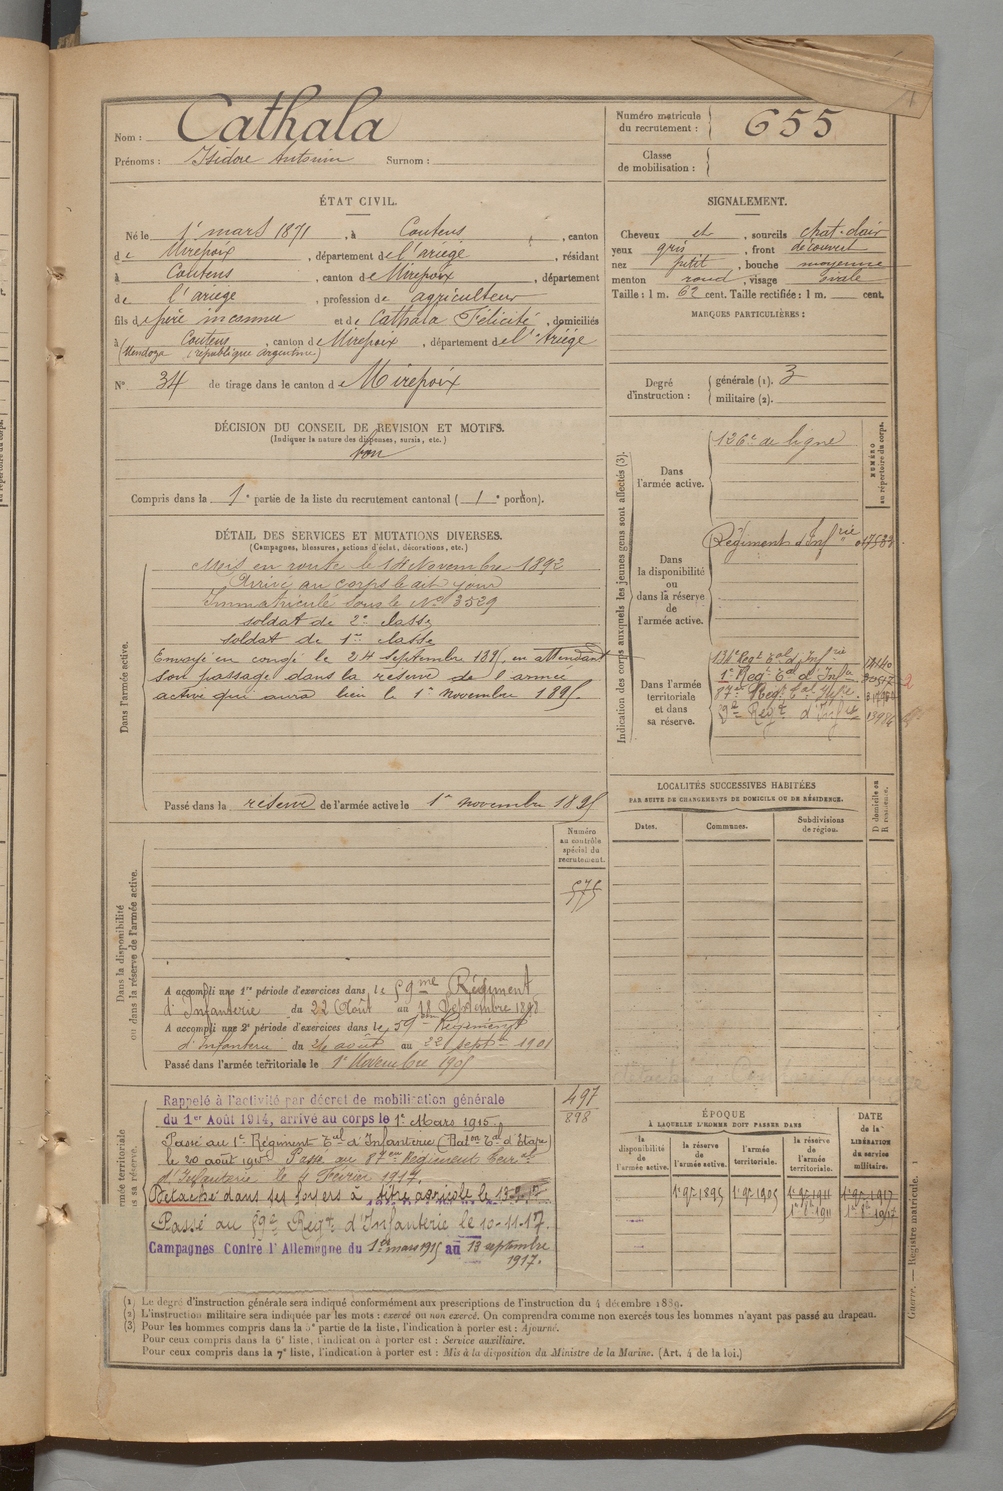 Nom : Cathala
Prénoms : Isidore Antonin Surnom :
Numéro matricule du recrutement : 655
Classe de mobilisation :
ÉTAT CIVIL.
Né le 1er mars 1871, à Coutens, canton
de Mirepoix, département de l'ariège, résidant
à Coutens, canton de Mirepoix, département
de l'ariege, profession de agriculteur
fils de père inconnu et de Cathala Félicité, domiciliés
à Coutens, canton de Mirepoix, département de l'Ariége
(Mendoza (république argentine)
N° 34 de tirage dans le canton de Mirepoix
SIGNALEMENT.
Cheveux et, sourcils chat. clair
yeux gris, front découvert
nez petit, bouche moyenne
menton rond, visage ovale
Taille : 1 m. 62 cent. Taille rectifiée : 1 m. cent.
MARQUES PARTICULIÈRES :
Degré d'instruction : générale (1). 3
militaire (2).
DÉCISION DU CONSEIL DE REVISION ET MOTIFS.
(Indiquer la nature des dispenses, sursis, etc.)
bon
Compris dans la 1e partie de la liste du recrutement cantonal (1e portion).
DÉTAIL DES SERVICES ET MUTATIONS DIVERSES.
(Campagnes, blessures, actions d'éclat, décorations, etc.)
Dans l'armée active.
Mis en route le 14 Novembre 1892
Arrivé au corps le dit jour
Immatriculé sous le N° 3529
soldat de 2e classe
soldat de 1re classe
Envoyé en congé le 24 septembre 1895, en attendant
son passage dans la réserve de l'armée
active qui aura lieu le 1er novembre 1895
Passé dans la réserve de l'armée active le 1er novembre 1895
Indication des corps auxquels les jeunes gens sont affectés (3).
NUMÉRO au répertoire du corps.
Dans l'armée active.
126e de ligne
Dans la disponibilité ou dans la réserve de l'armée active.
Régiment d'Infrie
Dans l'armée territoriale et dans sa réserve.
Regt Tal d'Infrie
1er Regt Tal d'Infie
87e Regt Tal Infie
59e Regt d'Infie
LOCALITÉS SUCCESSIVES HABITÉES
PAR SUITE DE CHANGEMENTS DE DOMICILE OU DE RÉSIDENCE.
Dates. Communes. Subdivisions de région. D domicile ou R résidence.
Dans la disponibilité ou dans la réserve de l'armée active.
Numéro au contrôle spécial du recrutement.
575
A accompli une 1re période d'exercices dans le 59me Régiment
d'Infanterie du 22 Août au 18 Septembre 1898
A accompli une 2e période d'exercices dans le 59me Régiment
d'Infanterie du août au 22 septre 1901
Passé dans l'armée territoriale le 1er Novembre 1905
497
898
Rappelé à l'activité par décret de mobilisation générale
du 1er Août 1914, arrivé au corps le 1er Mars 1915.
Passé au 1er Régiment Tal d'Infanterie (Baton Tal d'Etape)
le 20 août 1915 Passé au 87eme Régiment Terral
d'Infanterie le 4 Février 1917.
Détaché dans ses foyers à titre agricole le
Passé au 59e Regt d'Infanterie le 10-11-17.
Campagnes Contre l'Allemagne du 1er mars 1915 au 13 septembre
1917.
ÉPOQUE
À LAQUELLE L'HOMME DOIT PASSER DANS
la disponibilité de l'armée active. la réserve de l'armée active. l'armée territoriale. la réserve de l'armée territoriale.
DATE de la LIBÉRATION du service militaire.
1er 9bre 1895 1er 9bre 1905 1er 9bre 1911 1er 9bre 1917
1er 8bre 1911 1er 8bre 1917
(1) Le degré d'instruction générale sera indiqué conformément aux prescriptions de l'instruction du 4 décembre 1889.
(2) L'instruction militaire sera indiquée par les mots : exercé ou non exercé. On comprendra comme non exercés tous les hommes n'ayant pas passé au drapeau.
(3) Pour les hommes compris dans la 5e partie de la liste, l'indication à porter est : Ajourné.
Pour ceux compris dans la 6e liste, l'indication à porter est : Service auxiliaire.
Pour ceux compris dans la 7e liste, l'indication à porter est : Mis à la disposition du Ministre de la Marine. (Art. 4 de la loi.)
Guerre. — Registre matricule. 1